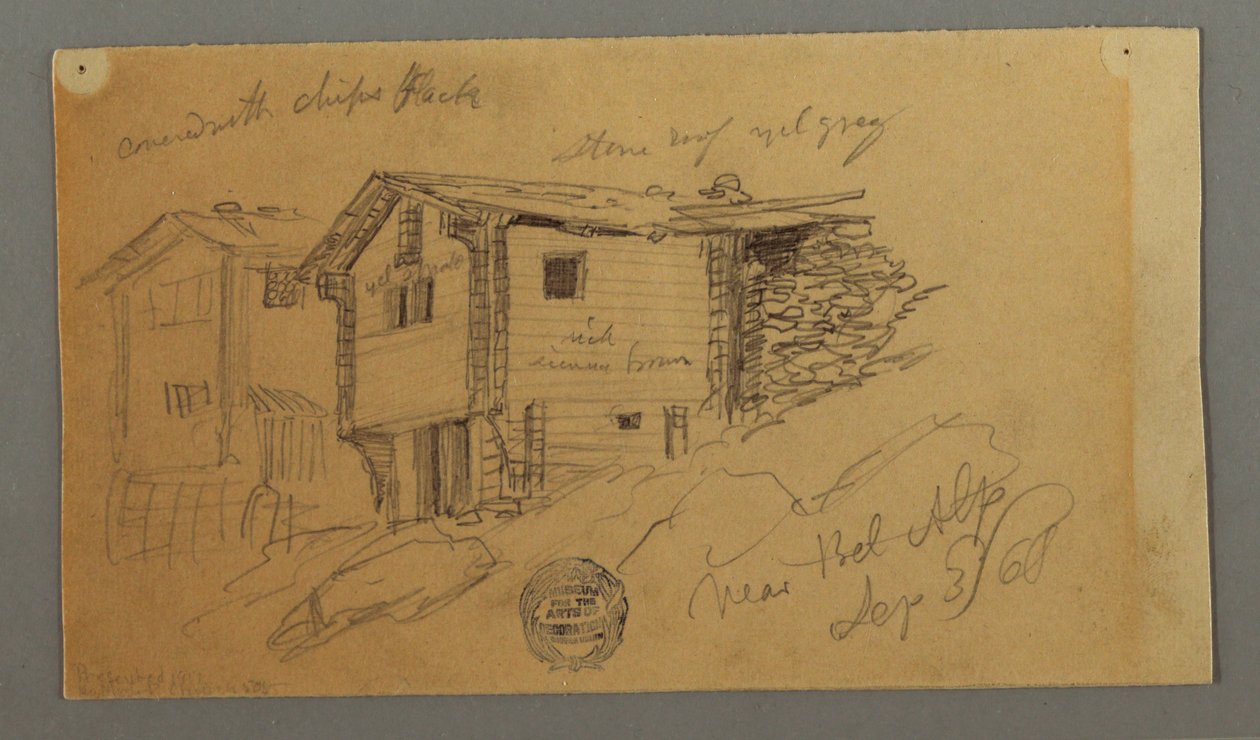 covered with chips black
stone roof yel grey
yel
rich
sienna brown
near Bel Alp
Sep 3/68
MUSEUM
FOR THE
ARTS OF
DECORATION